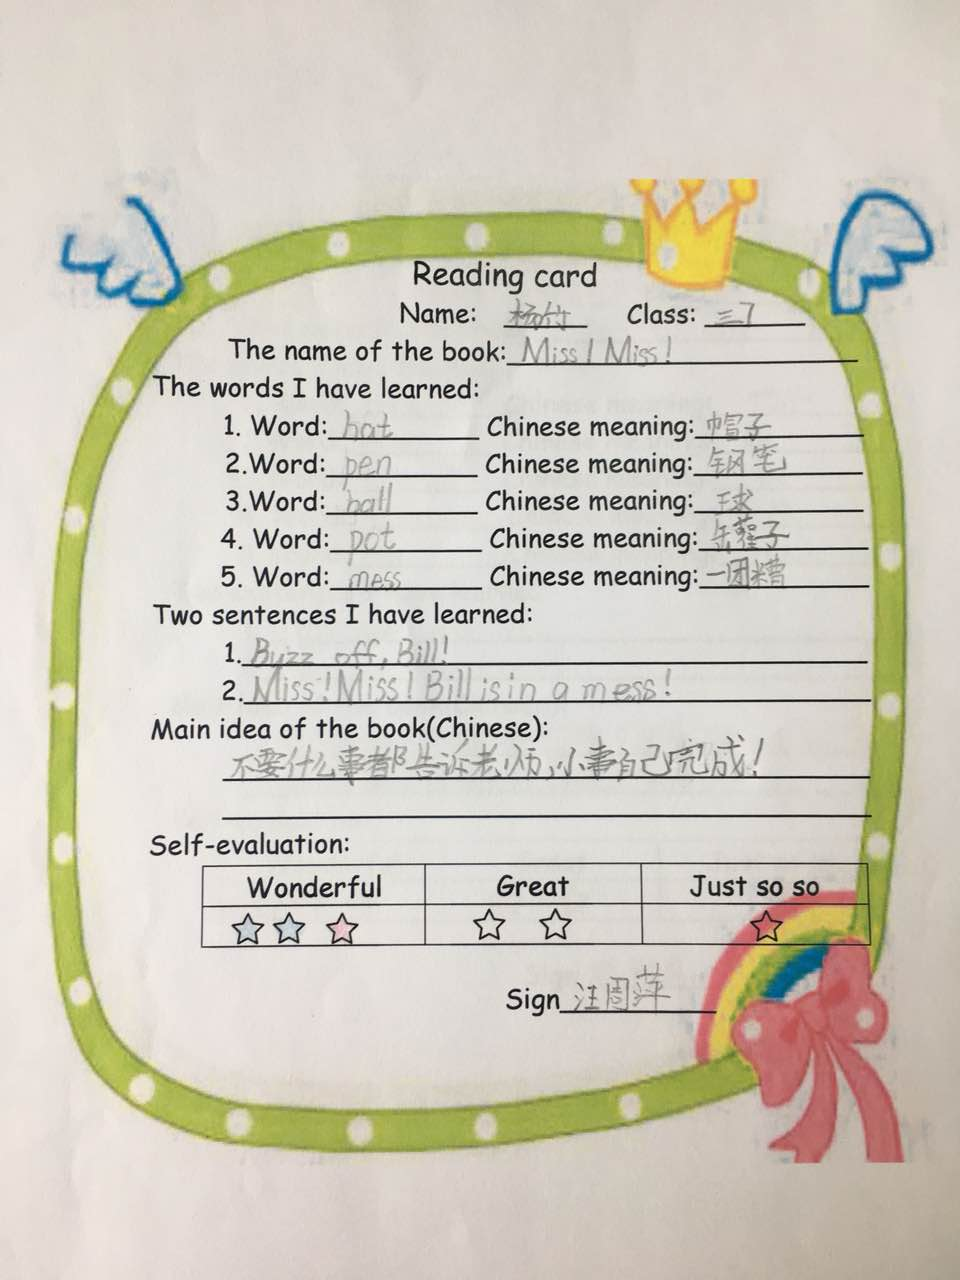 Reading card
Name: 杨竹 Class: 三7
The name of the book: Miss! Miss!
The words I have learned:
1. Word: hat Chinese meaning: 帽子
2.Word: pen Chinese meaning: 钢笔
3.Word: ball Chinese meaning: 球
4. Word: pot Chinese meaning: 缶罐子
5. Word: mess Chinese meaning: 一团糟
Two sentences I have learned:
1. Buzz off, Bill!
2. Miss! Miss! Bill is in a mess!
Main idea of the book(Chinese):
不要什么事都告诉老师,小事自己完成!
Self-evaluation:
Wonderful Great Just so so
Sign 汪周萍